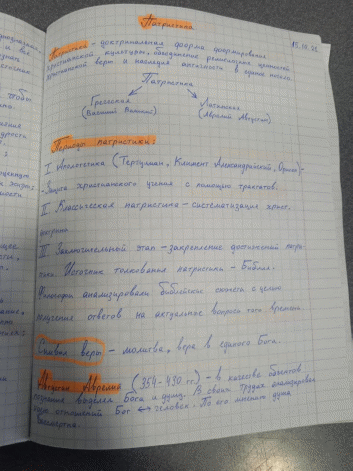 Патристика
Патристика - доктринальная форма формирования
христианской культуры, объединение религиозных ценностей
христианской веры и наследия античности в единое целое.
Патристика
Греческая
(Василий Великий)
Латинская
(Аврелий Августин)
Периоды патристики:
I Апологетика (Тертуллиан, Климент Александрийский, Ориген) -
- Защита христианского учения с помощью трактатов.
II Классическая патристика - систематизация христ.
III Заключительный этап - закрепление достижений патри-
стики. Источник толкования патристики - Библия.
Философы анализировали библейские сюжета с целью
получения ответов на актуальные вопросы того времени.
Символ веры - молитва, вера в единого Бога.
Августин Аврелий (354-430 гг.) - в качестве объектов
познания выделял Бога и душу. В своих трудах анализировал
отношений Бог ↔ человек. По его мнению душа
бессмертна.